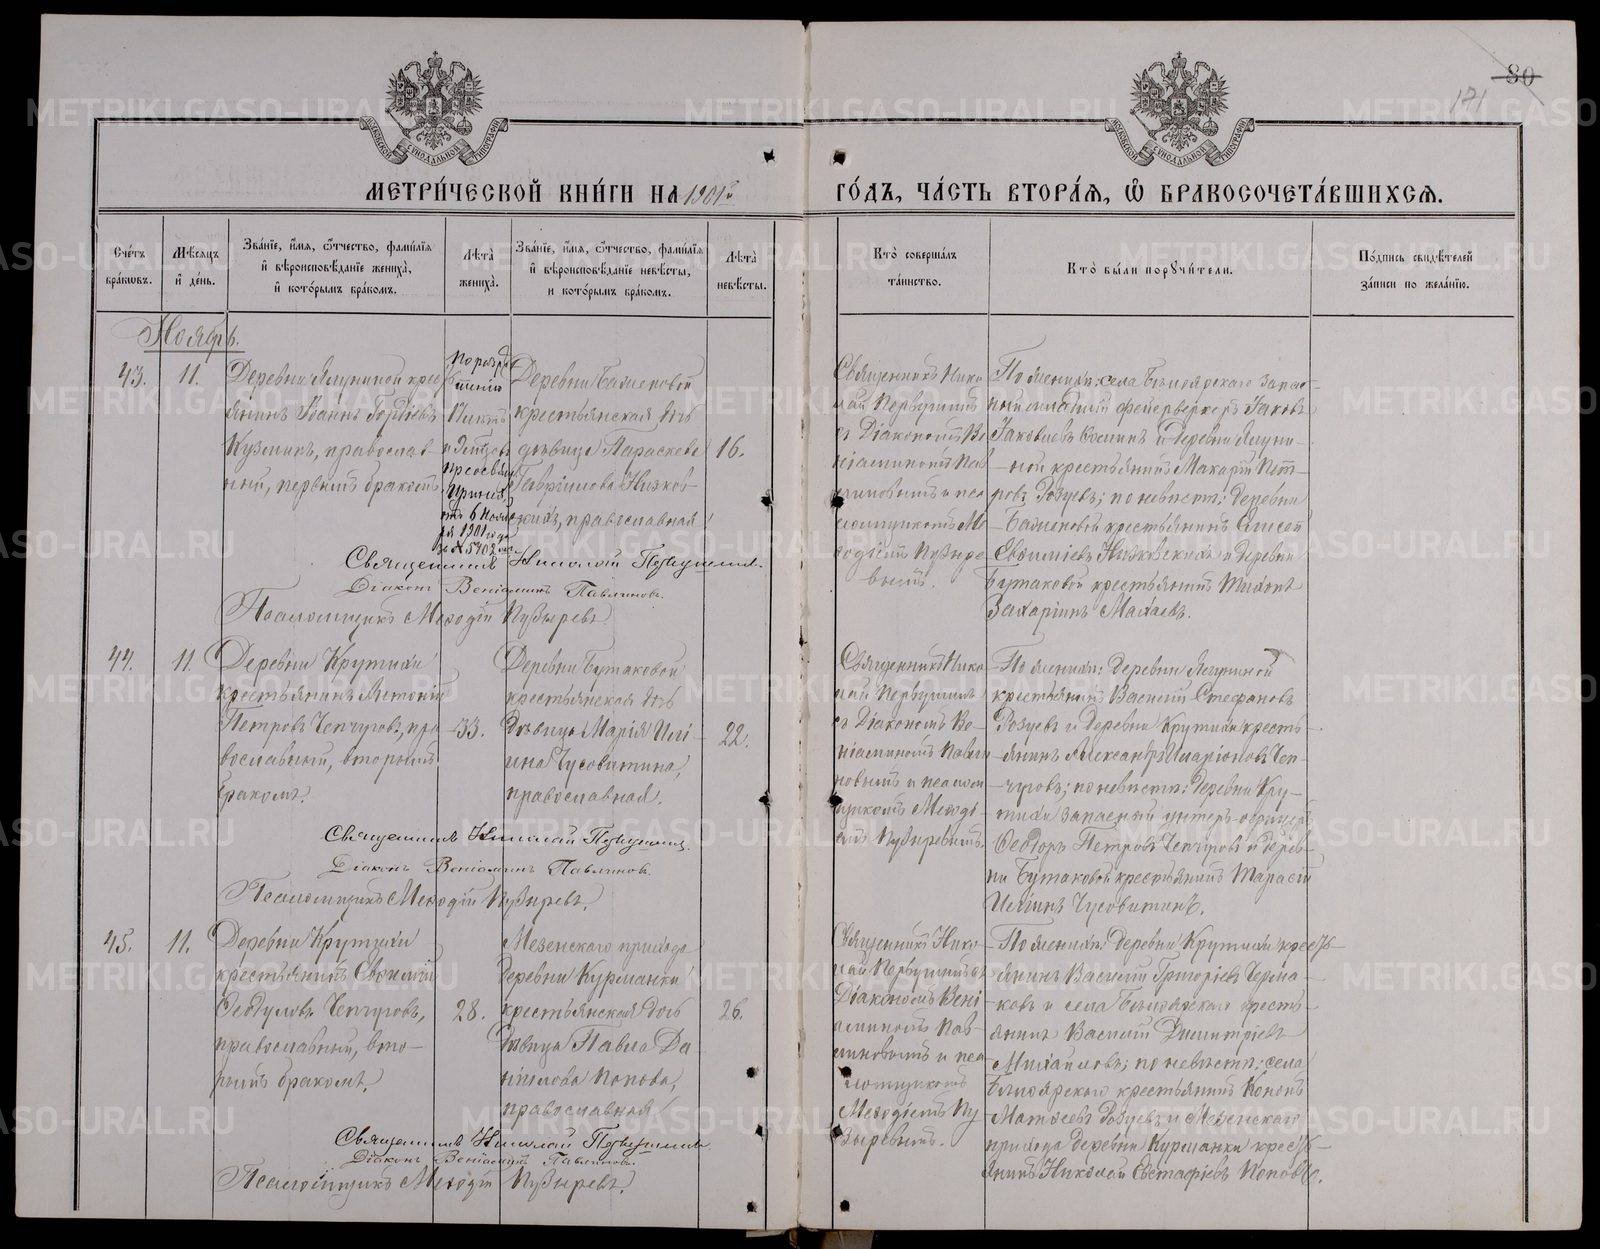 80
171
МЕТРИ́ЧЕСКОЙ КНИ́ГИ НА 1901й ГО́ДЪ, ЧА́СТЬ ВТОРА́Я, Ѽ БРАКОСОЧЕТА́ВШИХСЯ.
Сче́тъ бра́ковъ.
Мѣ́сяцъ и҆ де́нь.
Зва́нїе, и҆́мя, ѻ҆́тчество, фами́лїя и҆ вѣроисповѣ́данїе жениха̀, и҆ кото́рымъ бра́комъ.
Лѣ́та жениха̀.
Зва́нїе, и҆́мя, ѻ҆́тчество, фами́лїя и҆ вѣроисповѣ́данїе невѣ́сты, и кото́рымъ бра́комъ.
Лѣ́та невѣ́сты.
Кто̀ соверша́лъ та́инство.
Кто̀ бы́ли порꙋчи́тели.
По́дпись свидѣ́телей за́писи по жела́нїю.
Ноябрь.
43.
11.
Деревни Ялуниной кресть
янинъ Іоаннъ Гордіевъ
Кузминъ, православ-
ный, первымъ бракомъ
отъ 6 Нояб
ря 1901 года
за № 5702
Деревни Баженовой
крестьянская дочь
дѣвица Параскева
Гавріилова Низков-
скихъ, православная
16.
Священникъ Нико
лай Первушинъ
съ Діакономъ Ве
ніаминомъ Пав
линовымъ и пса
ломщикомъ Ме
ѳодіемъ Пузыре
вымъ.
По женихѣ: села Бѣлоярскаго запас-
ный младшій фейерверкеръ Іаковъ
Іаковлевъ и деревни Ялуни-
ной крестьянинъ Макарій Пет-
ровъ Розуевъ; по невѣстѣ: деревни
Баженовой крестьянинъ Елисей
Евѳиміевъ Низковскихъ и деревни
Бутаковой крестьянинъ Тихонъ
Захаріинъ Махаевъ.
Священникъ Николай Первушинъ.
Діаконъ Веніаминъ Павлиновъ.
Псаломщикъ Меѳодій Пузыревъ.
44.
11.
Деревни Крутихи
крестьянинъ Антоній
Петровъ Чепчуговъ, пра
вославный, вторымъ
бракомъ.
33.
Деревни Бутаковой
крестьянская дочь
дѣвица Марія Илі-
ина Чусовитина,
православная.
22.
Священникъ Нико
лай Первушинъ
съ Діакономъ Ве-
ніаминомъ Павли
новымъ и псалом
щикомъ Меѳоді
емъ Пузыревымъ.
По женихѣ: деревни Ялуниной
крестьянинъ Василій Стефановъ
Розуевъ и деревни Крутихи кресть-
янинъ Александръ Иларіоновъ Чеп-
чуговъ; по невѣстѣ: деревни Кру-
тихи запасный унтеръ-офицеръ
Ѳеодоръ Петровъ Чепчуговъ и дерев-
ни Бутаковой крестьянинъ Тарасій
Иліинъ Чусовитинъ.
Священникъ Николай Первушинъ.
Діаконъ Веніаминъ Павлиновъ.
Псаломщикъ Меѳодій Пузыревъ.
45.
11.
Деревни Крутихи
крестьянинъ Евѳимій
Ѳеодуловъ Чепчуговъ,
православный, вто-
рымъ бракомъ.
28.
Мезенскаго прихода
деревни Курманки
крестьянская дочь
дѣвица Павла Да
ніилова Попова,
православная
26.
Священникъ Нико-
лай Первушинъ съ
Діакономъ Вені
аминомъ Пав-
линовымъ и пса
ломщикомъ
Меѳодіемъ Пу
зыревымъ.
По женихѣ: деревни Крутихи кресть-
янинъ Василій Григоріевъ Черна-
ковъ и села Бѣлоярскаго кресть-
янинъ Василій Димитріевъ
Михайловъ; по невѣстѣ: села
Бѣлоярскаго крестьянинъ Кононъ
Матѳеевъ Розуевъ и Мезенскаго
прихода деревни Курманки кресть-
янинъ Николай Евстафіевъ Поповъ.
Священникъ Николай Первушинъ
Діаконъ Веніаминъ Павлиновъ.
Псаломщикъ Меѳодій Пузыревъ.
METRIKI.GASO-URAL.RU